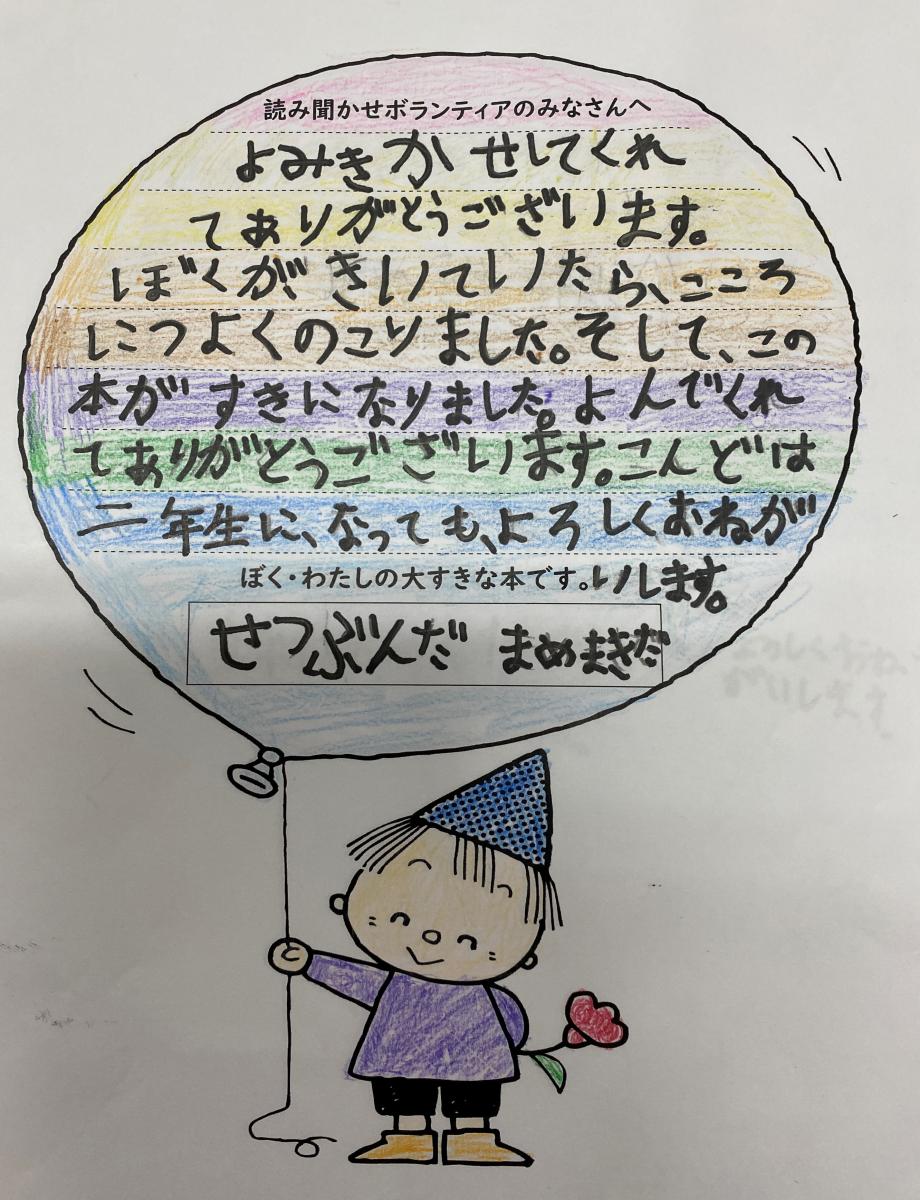 読み聞かせボランティアのみなさんへ
よみきかせしてくれ
てありがとうございます。
ぼくがきいていたら、こころ
につよくのこりました。そして、この
本がすきになりました。よんでくれ
てありがとうございます。こんどは
二年生に、なっても、よろしくおねが
ぼく・わたしの大すきな本です。いします。
せつぶんだ まめまきだ